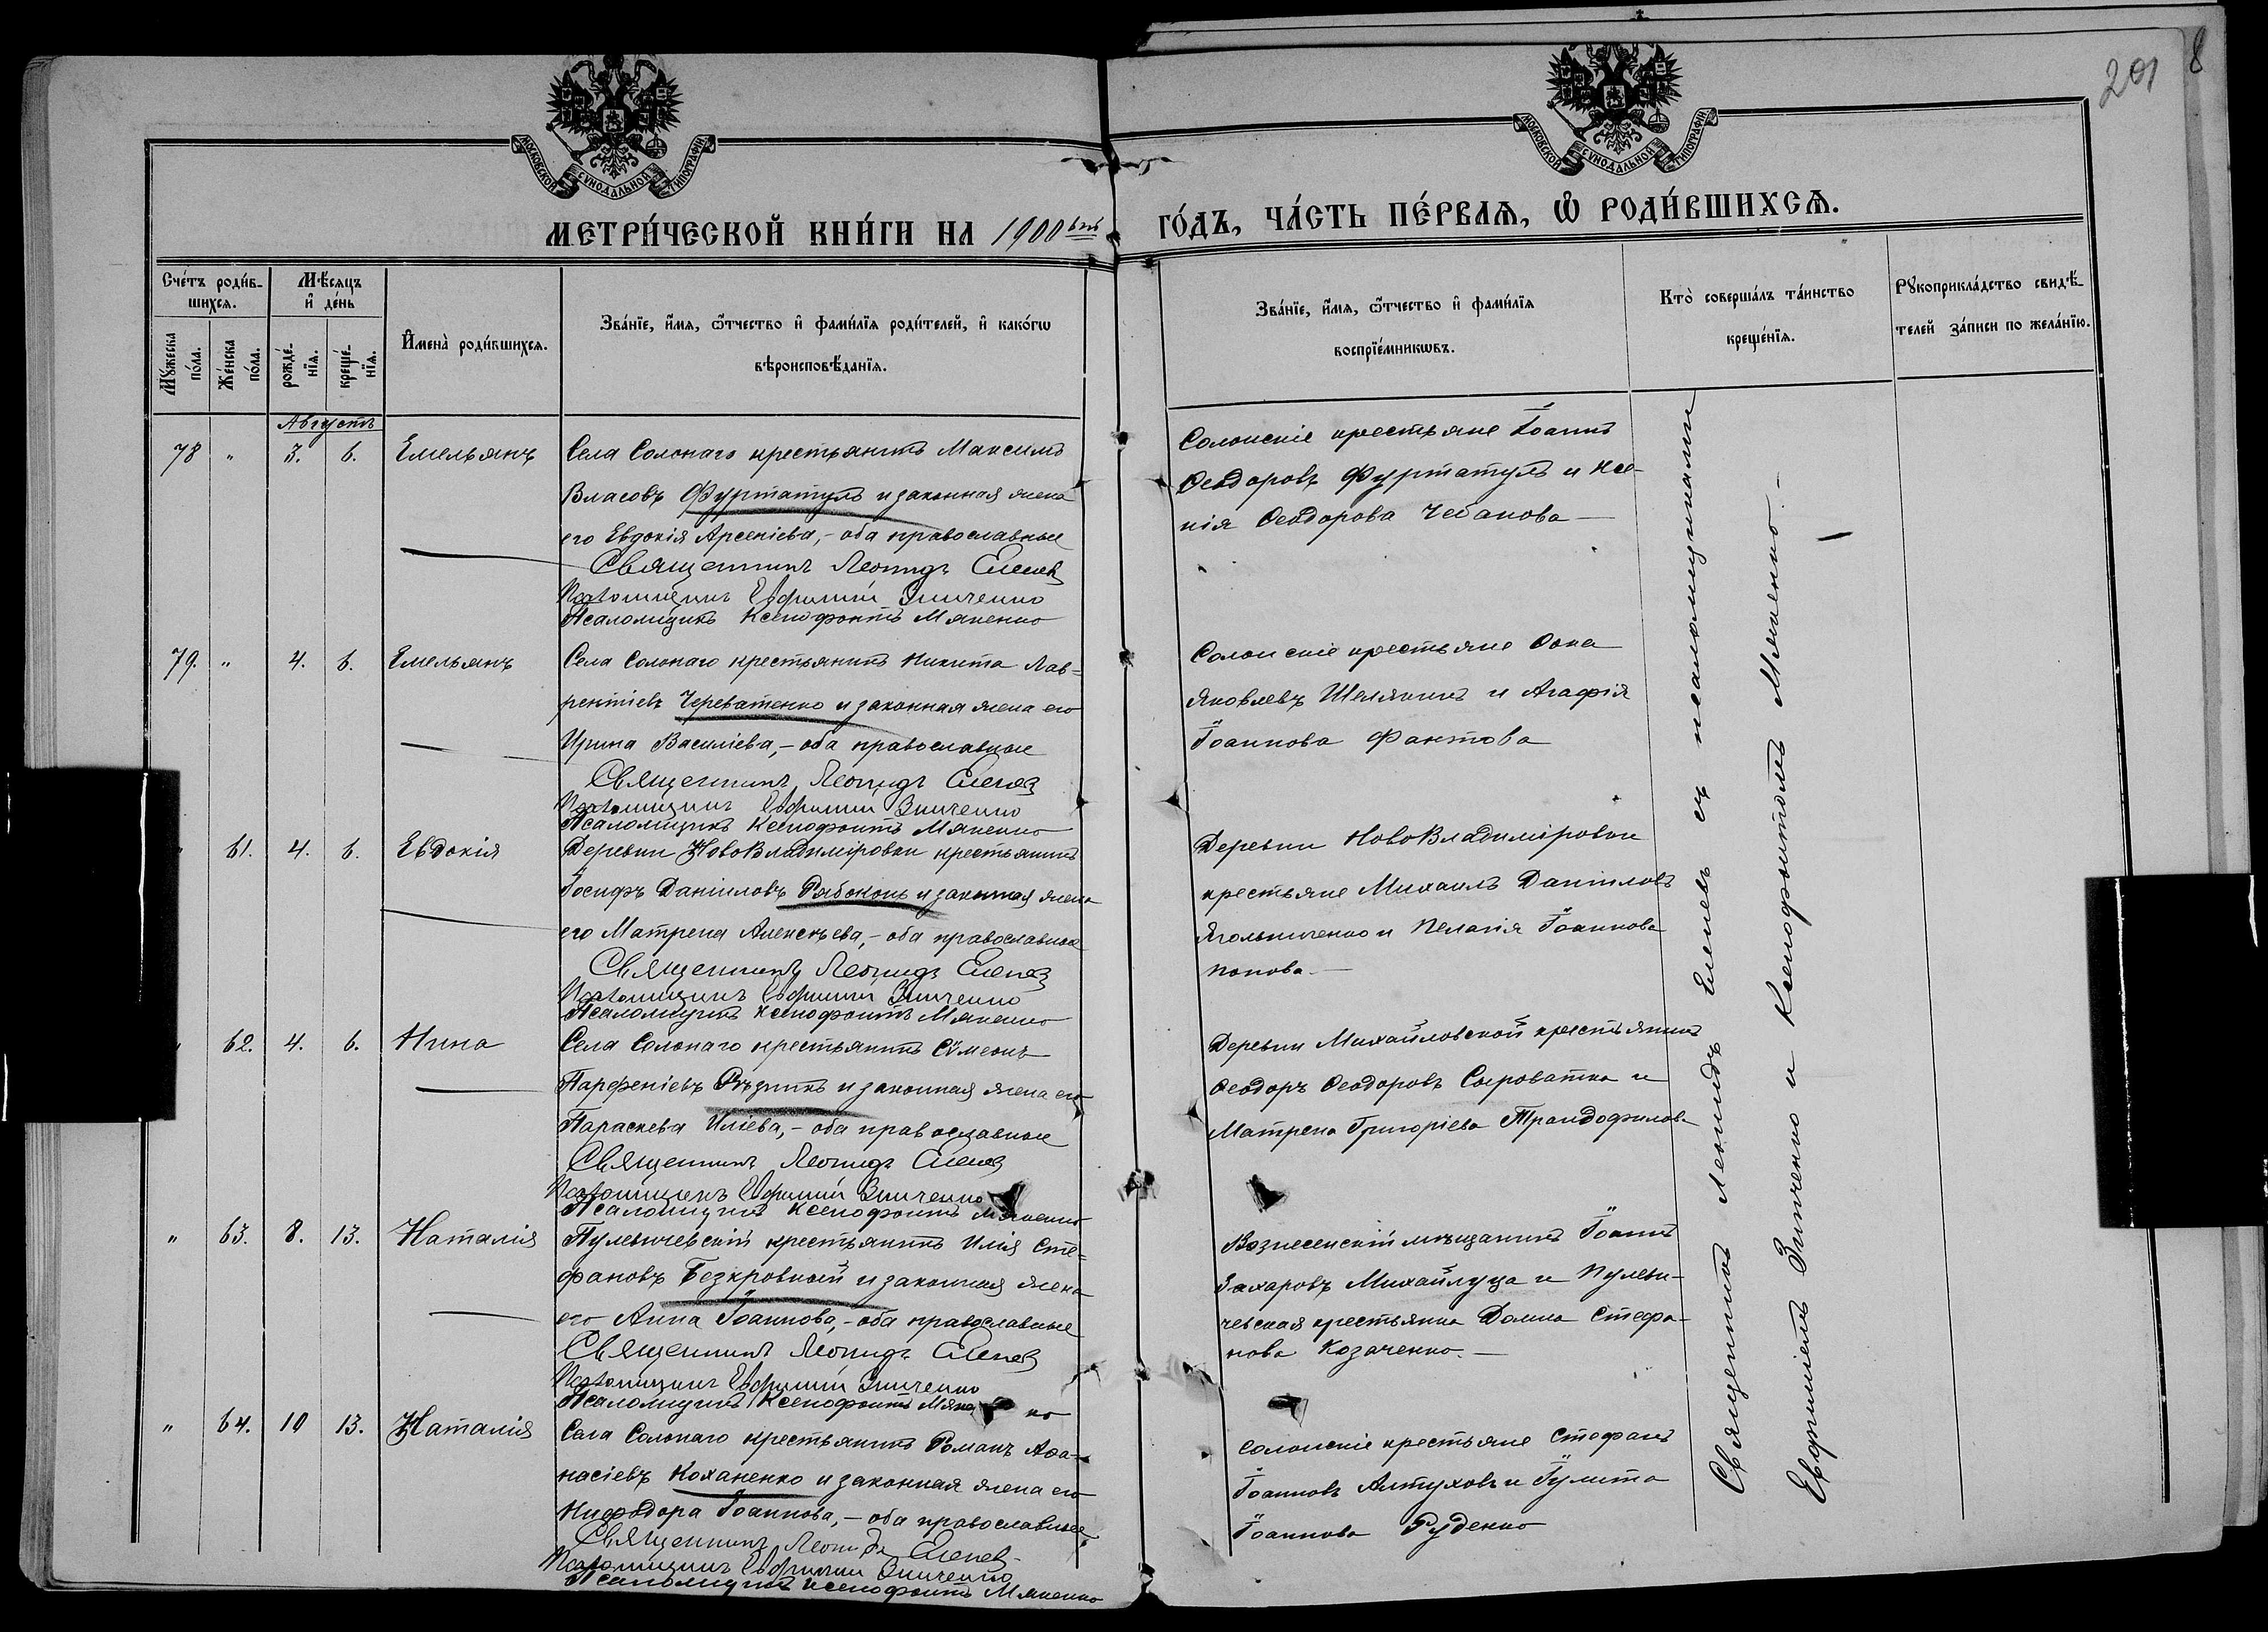 201
8
МОСКОВСКОЙ СѴНОДАЛЬНОЙ ТИПОГРАФІИ
МОСКОВСКОЙ СѴНОДАЛЬНОЙ ТИПОГРАФІИ
МЕТРИ́ЧЕСКОЙ КНИ́ГИ НА 1900 ый
ГО́ДЪ, ЧА́СТЬ ПЕ́РВАѦ, Ѽ РОДИ́ВШИХСѦ.
Сче́тъ роди́в-
шихсѧ.
Мꙋ́жеска по́ла.
Же́нска по́ла.
Мѣ́сѧцъ
и҆ де́нь
рожде́-
нїѧ.
креще́-
нїѧ.
И҆мена̀ роди́вшихсѧ.
Зва́нїе, и҆́мѧ, ѻ҆́тчество и҆ фами́лїѧ роди́телей, и҆ како́гѡ
вѣроисповѣ́данїѧ.
Зва́нїе, и҆́мѧ, ѻ҆́тчество и҆ фами́лїѧ
воспрїе́мникѡвъ.
Кто̀ соверша́лъ та́инство
креще́нїѧ.
Рꙋкоприкла́дство свидѣ́-
телей за́писи по жела́нїю.
Августъ
78 " 3. 6. Емельянъ Села Солонаго крестьянинъ Максимъ
Власовъ Фуртатуль и законная жена
его Евдокія Арсеніева, - оба православные
Священникъ Леонидъ Еленевъ
Псаломщикъ Евфимій Зинченко
Псаломщикъ Ксенофонтъ Мякенко
Солонскіе крестьяне Іоаннъ
Ѳеодоровъ Фуртатулъ и Ксе-
нія Ѳеодорова Чебанова —
79. " 4. 6. Емельянъ Села Солонаго крестьянинъ Никита Лав-
рентіевъ Череватенко и законная жена его
Ирина Василіева, - оба православные
Священникъ Леонидъ Еленевъ
Псаломщикъ Евфимій Зинченко
Псаломщикъ Ксенофонтъ Мякенко
Солонскіе крестьяне Ѳока
Яковлевъ Шелякинъ и Агафія
Іоаннова Фактова
" 61. 4. 6. Евдокія Деревни НовоВладиміровки крестьянинъ
Іосифъ Даніиловъ Рябоконь и законная жена
его Матрена Алексѣева, - оба православные
Священникъ Леонидъ Еленевъ
Псаломщикъ Евфимій Зинченко
Псаломщикъ Ксенофонтъ Мякенко
Деревни НовоВладиміровки
крестьяне Михаилъ Даніиловъ
Ягольниченко и Пелагія Іоаннова
Попова —
" 62. 4. 6. Нина Села Солонаго крестьянинъ Сѵмеонъ
Парфеніевъ Рѣзникъ и законная жена его
Параскева Иліева, - оба православные
Священникъ Леонидъ Еленевъ
Псаломщикъ Евфимій Зинченко
Псаломщикъ Ксенофонтъ Мякенко
Деревни Михайловской крестьянинъ
Ѳеодоръ Ѳеодоровъ Сыроватка и
Матрена Григоріева Трандофилова
" 63. 8. 13. Наталія Пулевичевскій крестьянинъ Илія Сте-
фановъ Безкровный и законная жена
его Анна Іоаннова, - оба православные
Священникъ Леонидъ Еленевъ
Псаломщикъ Евфимій Зинченко
Псаломщикъ Ксенофонтъ Мяке ко
Вознесенскій мѣщанинъ Іоаннъ
Захаровъ Михайлуца и Пулеви-
чевская крестьянка Домна Стефа-
нова Козаченко. —
" 64. 10 13. Наталія Села Солонаго крестьянинъ Романъ Аѳа-
насіевъ Коханенко и законная жена его
Нифодора Іоаннова, - оба православные
Священникъ Леонидъ Еленевъ
Псаломщикъ Евфимій Зинченко
Псаломщикъ Ксенофонтъ Мякенко
Солонскіе крестьяне Стефанъ
Іоанновъ Алтуховъ и Іулита
Іоаннова Руденко
Священникъ Леонидъ Еленевъ съ псаломщиками
Евфиміемъ Зинченко и Ксенофонтомъ Мякенко. —